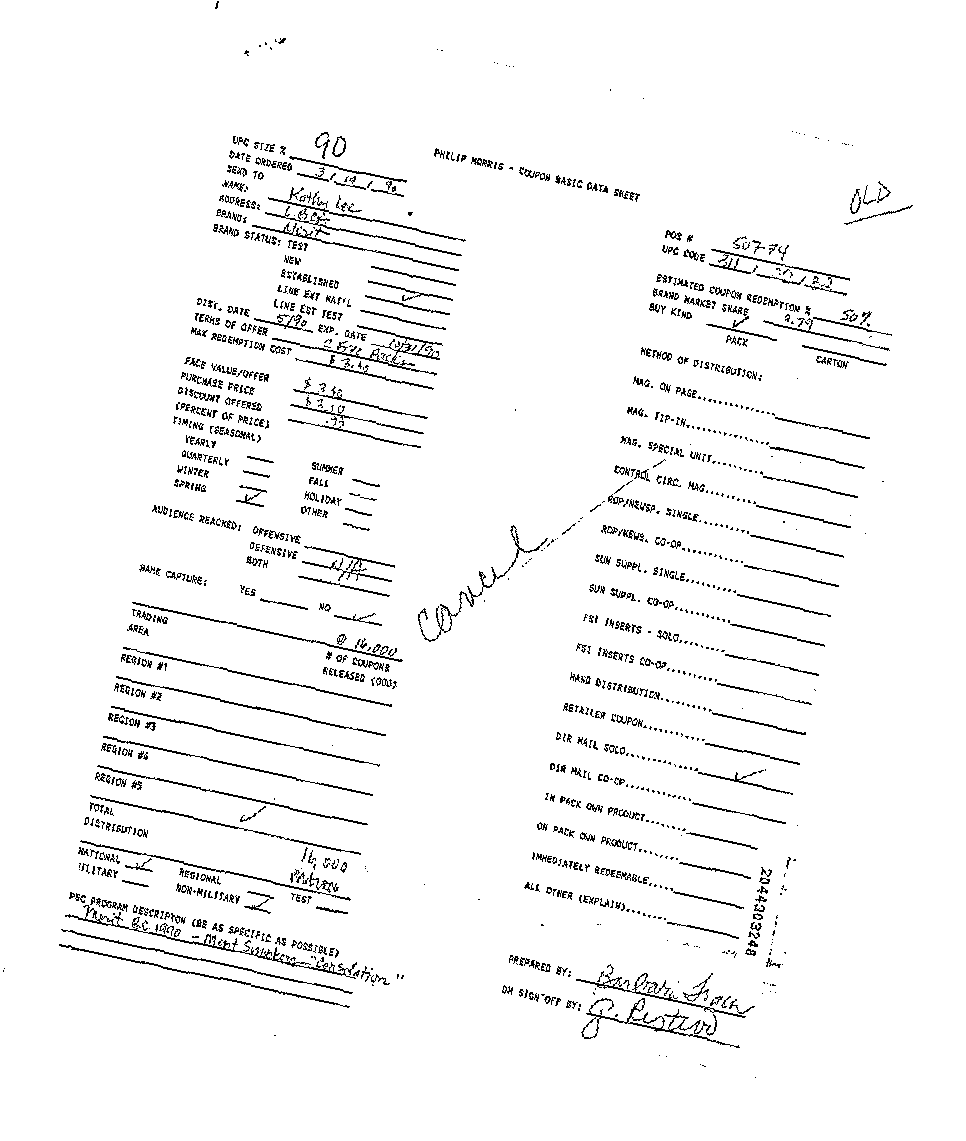 PHILIP MORRIS - COUPON BASIC DATA SHEET
OLD
UPC SIZE % 90
DATE ORDERED 3/19/90
SEND TO
NAME: Kathy Lee
ADDRESS:
BRAND: Merit
BRAND STATUS: TEST
NEW
ESTABLISHED ✓
LINE EXT NAT'L
LINE EXT TEST
DIST. DATE 5/90 EXP. DATE 10/31/90
TERMS OF OFFER 2 Free Packs
MAX REDEMPTION COST $3.40
FACE VALUE/OFFER $3.40
PURCHASE PRICE
DISCOUNT OFFERED
(PERCENT OF PRICE)
TIMING (SEASONAL)
YEARLY
QUARTERLY
WINTER
SPRING ✓
SUMMER
FALL
HOLIDAY
OTHER
AUDIENCE REACHED: OFFENSIVE
DEFENSIVE
BOTH N/A
NAME CAPTURE: YES NO ✓
TRADING AREA
16,000
# OF COUPONS
RELEASED (000)
REGION #1
REGION #2
REGION #3
REGION #4
REGION #5
TOTAL ✓
DISTRIBUTION 16,000
NATIONAL ✓ REGIONAL TEST
MILITARY NON-MILITARY ✓
PSC PROGRAM DESCRIPTON (BE AS SPECIFIC AS POSSIBLE)
Merit BC 1990 - Merit Smokers - "Consolation"
POS # 50774
UPC CODE
ESTIMATED COUPON REDEMPTION % 50%
BRAND MARKET SHARE 3.79
BUY KIND ✓
PACK CARTON
METHOD OF DISTRIBUTION:
MAG. ON PAGE
MAG. TIP-IN
MAG. SPECIAL UNIT
CONTROL CIRC. MAG.
ROP/NEWSP. SINGLE
ROP/NEWS. CO-OP
SUN SUPPL. SINGLE
SUN SUPPL. CO-OP
FSI INSERTS - SOLO
FSI INSERTS CO-OP
HAND DISTRIBUTION
RETAILER COUPON
DIR MAIL SOLO ✓
DIR MAIL CO-OP
IN PACK OWN PRODUCT
ON PACK OWN PRODUCT
IMMEDIATELY REDEEMABLE
ALL OTHER (EXPLAIN)
Cancel
PREPARED BY: Barbara
DM SIGN-OFF BY: G.
2044303248